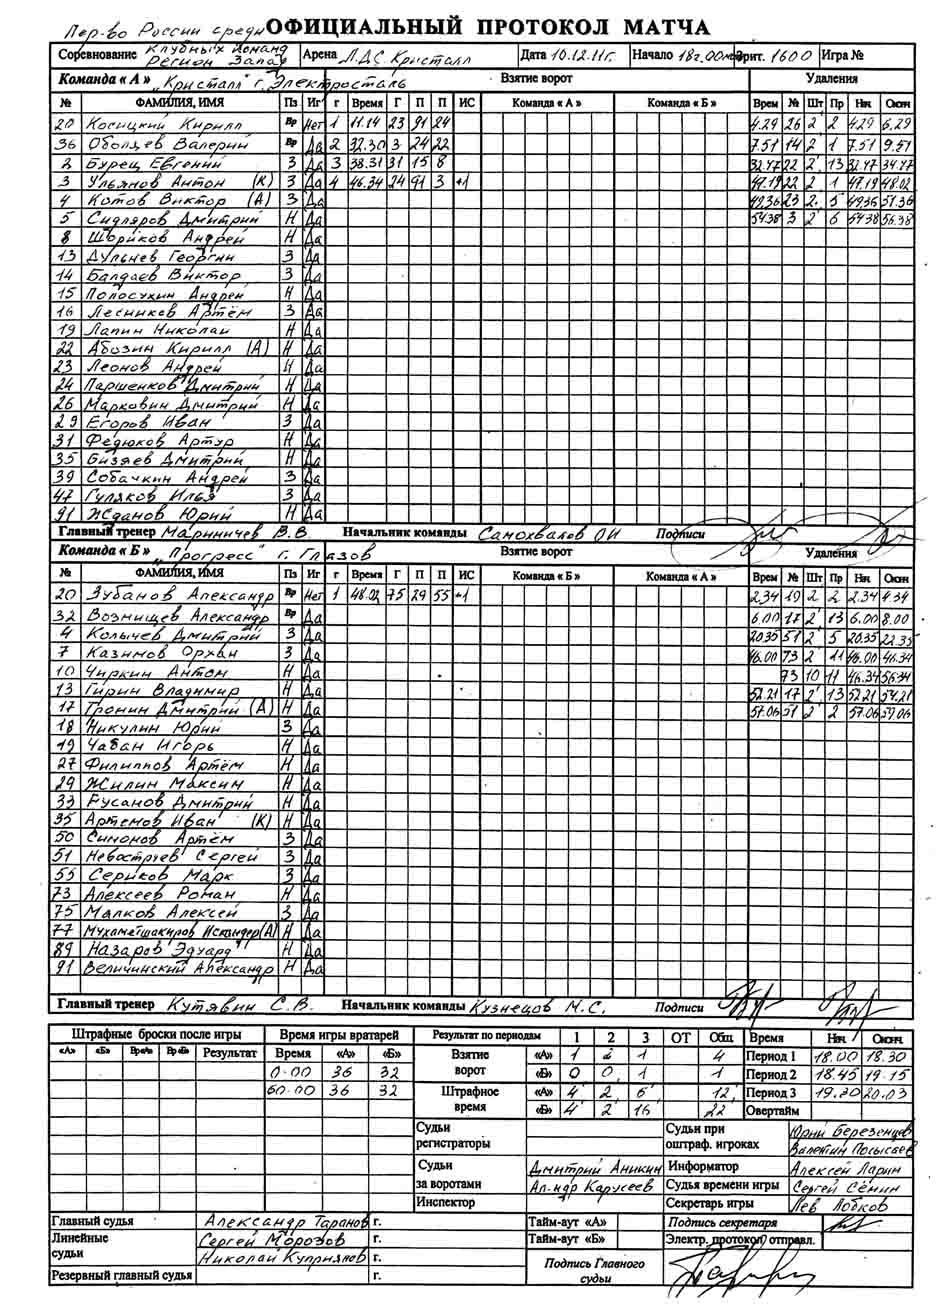 Пер-во России среди ОФИЦИАЛЬНЫЙ ПРОТОКОЛ МАТЧА
Соревнование Клубных Команд Регион Запад Арена ЛДС Кристалл Дата 10.12.11г. Начало 18ч.00м Зрит. 1600 Игра №
Команда « А » „Кристалл" г. Электросталь Взятие ворот Удаления
№ ФАМИЛИЯ, ИМЯ Пз Иг г Время Г П П ИС Команда « А » Команда « Б » Врем № Шт Пр Нач Оконч
20 Косицкий Кирилл Вр Нет 1 11.14 23 91 24 4.29 26 2' 2 4.29 6.29
36 Оболдев Валерий Вр Да 2 32.30 3 24 22 7.51 14 2' 1 7.51 9.51
2 Бурец Евгений З Да 3 38.31 31 15 8 32.47 22 2' 13 32.47 34.47
3 Ульянов Антон (К) З Да 4 46.34 24 91 3 +1 47.19 22 2 1 47.19 48.02
4 Котов Виктор (А) З Да 49.36 23 2. 5 49.36 51.36
5 Сидляров Дмитрий Н Да 54.38 3 2' 6 54.38 56.38
8 Шориков Андрей Н Да
13 Дульнев Георгий З Да
14 Балдаев Виктор З Да
15 Полосухин Андрей Н Да
16 Лесников Артём З Да
19 Лапин Николай Н Да
22 Абозин Кирилл (А) Н Да
23 Леонов Андрей Н Да
24 Паршенков Дмитрий Н Да
26 Марковин Дмитрий Н Да
29 Егоров Иван З Да
31 Федюков Артур Н Да
35 Бизяев Дмитрий Н Да
39 Собачкин Андрей З Да
47 Гуляков Илья З Да
91 Жданов Юрий Н Да
Главный тренер Мариничев В.В. Начальник команды Самохвалов ОИ Подписи
Команда « Б » „Прогресс" г. Глазов Взятие ворот Удаления
№ ФАМИЛИЯ, ИМЯ Пз Иг г Время Г П П ИС Команда « Б » Команда « А » Врем № Шт Пр Нач Оконч
20 Зубанов Александр Вр Нет 1 48.02 75 29 55 +1 2.34 19 2 2 2.34 4.34
32 Вознищев Александр Вр Да 6.00 17 2' 13 6.00 8.00
4 Колычев Дмитрий З Да 20.35 51 2 5 20.35 22.35
7 Казимов Орхан З Да 46.00 73 2 11 46.00 46.34
10 Чиркин Антон Н Да 73 10 11 46.34 56.34
13 Гирин Владимир Н Да 52.21 17 2' 13 52.21 54.21
17 Тронин Дмитрий (А) Н Да 57.06 51 2' 2 57.06 59.06
18 Никулин Юрий З Да
19 Чабан Игорь Н Да
27 Филиппов Артём Н Да
29 Жилин Максим Н Да
33 Русанов Дмитрий Н Да
35 Артемов Иван (К) Н Да
50 Симонов Артём З Да
51 Невоструев Сергей З Да
55 Сериков Марк З Да
73 Алексеев Роман Н Да
75 Малков Алексей З Да
77 Мухаметшакиров Искандер (А) Н Да
89 Назаров Эдуард Н Да
91 Величинский Александр Н Да
Главный тренер Кутявин С.В. Начальник команды Кузнецов М.С. Подписи
Штрафные броски после игры Время игры вратарей Результат по периодам 1 2 3 ОТ Общ Время Нач. Оконч.
«А» «Б» Вр«А» Вр«Б» Результат Время «А» «Б» Взятие ворот «А» 1 2 1 4 Период 1 18.00 18.30
0.00 36 32 «Б» 0 0 1 1 Период 2 18.45 19.15
60.00 36 32 Штрафное время «А» 4' 2' 6' 12' Период 3 19.30 20.03
«Б» 4' 2' 16 22 Овертайм
Судьи регистраторы Судьи при оштраф. игроках Юрий Березенцев
Валентин Посысаев
Судьи за воротами Дмитрий Аникин Информатор Алексей Ларин
Ал-ндр Карусеев Судья времени игры Сергей Сёмин
Инспектор Секретарь игры Лев Лобков
Главный судья Александр Таранов г. Тайм-аут «А» Подпись секретаря
Линейные судьи Сергей Морозов г. Тайм-аут «Б» Электр. протокол отправл.
Николай Куприянов г. Подпись Главного судьи
Резервный главный судья г.